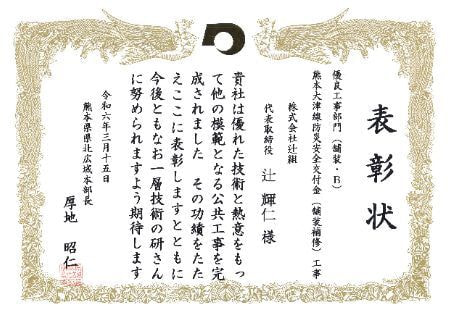 表彰状
優良工事部門(舗装・B)
熊本大津線防災安全交付金(舗装補修)工事
株式会社辻組
代表取締役 辻 輝仁 様
貴社は優れた技術と熱意をもっ
て他の模範となる公共工事を完
成されました その功績をたた
えここに表彰しますとともに
今後ともなお一層技術の研さん
に努められますよう期待します
令和六年三月十五日
熊本県県北広域本部長
厚地 昭仁